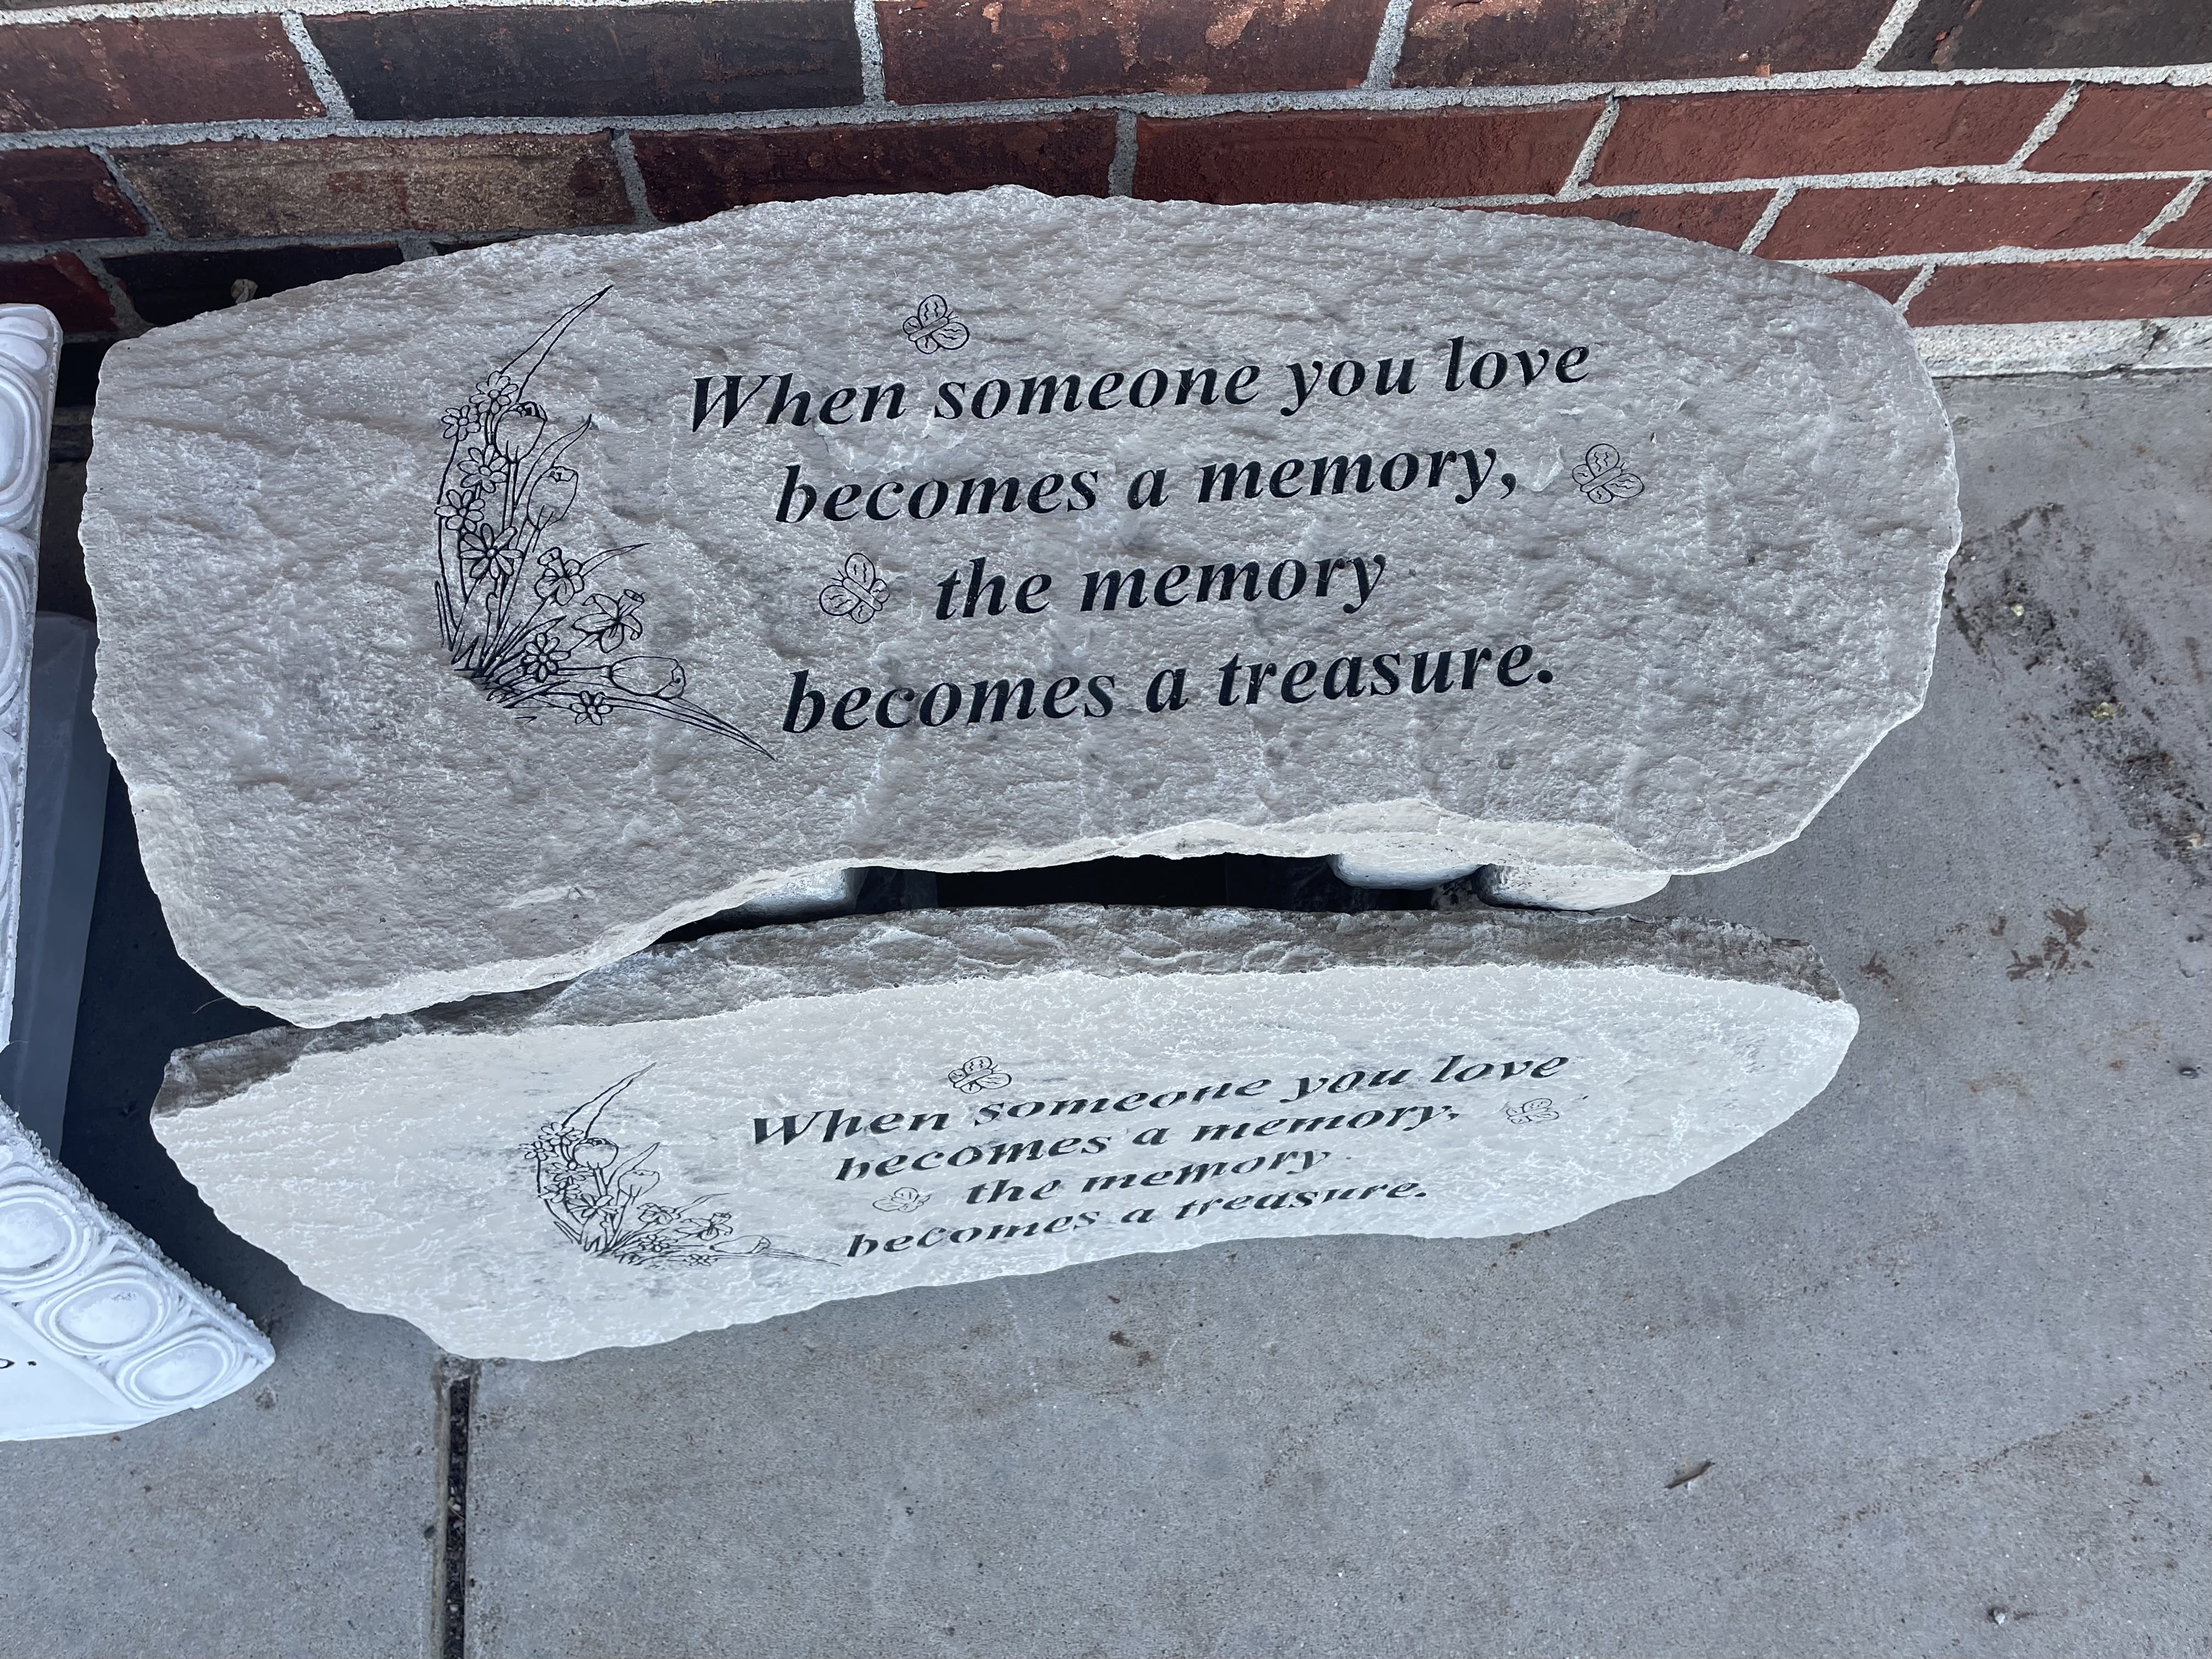 When someone you love
becomes a memory,
the memory
becomes a treasure.
When someone you love
becomes a memory,
the memory
becomes a treasure.